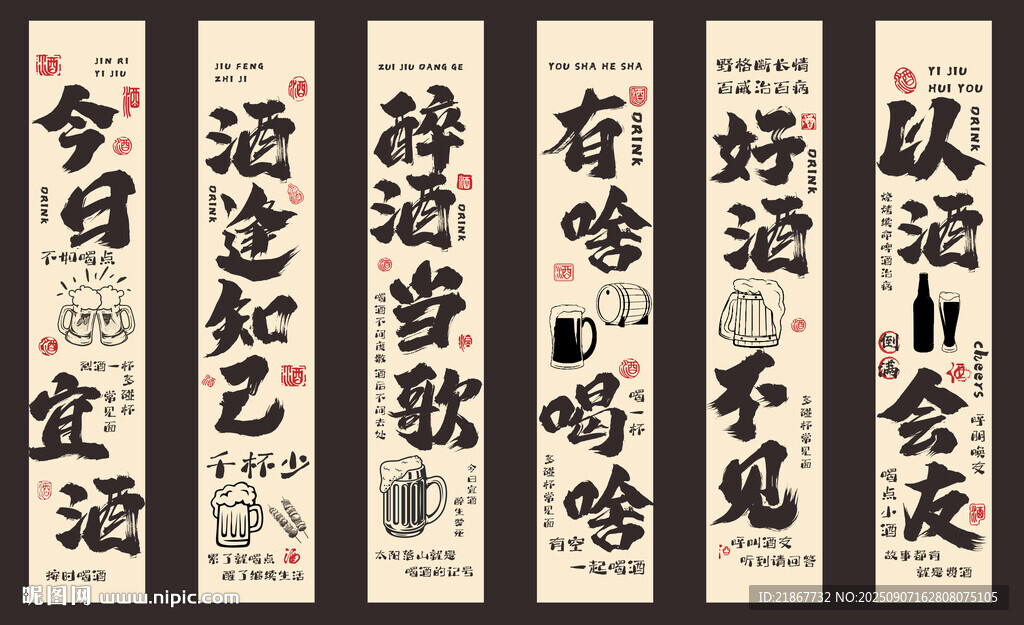 JIN RI
YI JIU
今日宜酒
DRINK
不如喝点
烈酒一杯
多碰杯
常见面
择时喝酒
JIU FENG
ZHI JI
酒逢知己
DRINK
千杯少
累了就喝点
酒
醒了继续生活
ZUI JIU DANG GE
醉酒当歌
DRINK
喝酒不问度数
酒后不问去处
今日宜酒
醉生梦死
太阳落山就是
喝酒的记号
YOU SHA HE SHA
有啥喝啥
DRINK
喝一杯
多碰杯常见面
有空
一起喝酒
野格断长情
百威治百病
好酒不见
DRINK
多碰杯常见面
呼叫酒友
听到请回答
YI JIU
HUI YOU
以酒会友
DRINK
烧烤续命啤酒治病
倒满
cheers
呼朋唤友
喝点小酒
故事都有
就是费酒
昵图网 www.nipic.com
ID:21867732 NO:20250907162808075105